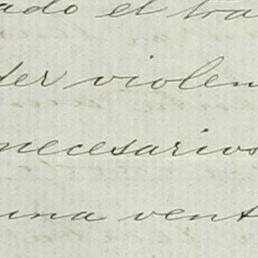 ado el tra
der violen
necesarios
una vent